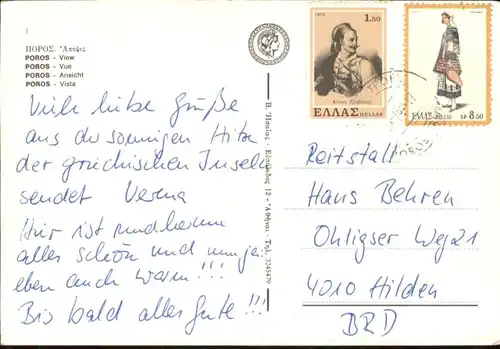 ΠΟΡΟΣ. Ἄποψις
POROS - View
POROS - Vue
POROS - Ansicht
POROS - Vista
Viele liebe Grüße
aus der sonnigen Hitze
der griechischen Inseln
sendet Verena
Hier ist rundherum
alles schön und
eben auch warm!!!
Bis bald alles Gute!!!
12 - Ἀθῆναι - Τηλ. 3245479
1979
1.50
ΕΛΛΑΣ HELLAS
ΕΛΛΑΣ-HELLAS ΔΡ 8.50
POROS
Reitstall
Hans Behren
Ohligser Weg 21
4010 Hilden
BRD